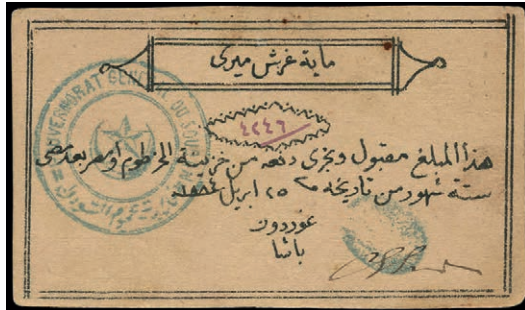 ماية غرش ميرى
GOUVERNORAT GENERAL DU SOU
٤٢٤٦
هذا المبلغ مقبول ويجرى دفعه من خزينة الخرطوم او مصر بعد مضى
ستة شهور من تاريخه ٢٥ ابريل ١٨٨٤
غوردون
باشا